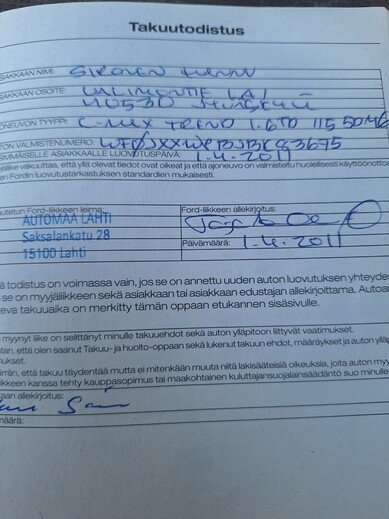 Takuutodistus
SAKKAAN NIMI:
SAKKAAN OSOITE: VALIMOTIE 1 A 1
40530 JYVÄSKYLÄ
ONEUVON TYYPPI: C-MAX TREND 1.6TD 115 5DM6
TON VALMISTENUMERO:
SIMMÄISELLE ASIAKKAALLE LUOVUTUSPÄIVÄ: 1.4.2011
liike vakuuttaa, että yllä olevat tiedot ovat oikeat ja että ajoneuvo on valmisteltu huolellisesti käyttöönottoa
en Fordin luovutustarkastuksen standardien mukaisesti.
utetun Ford-liikkeen leima:
AUTOMAA LAHTI
Saksalankatu 28
15100 Lahti
Ford-liikkeen allekirjoitus:
Päivämäärä: 1.4.2011
ä todistus on voimassa vain, jos se on annettu uuden auton luovutuksen yhteyde
se on myyjäliikkeen sekä asiakkaan tai asiakkaan edustajan allekirjoittama. Autoa
eva takuuaika on merkitty tämän oppaan etukannen sisäsivulle.
myynyt liike on selittänyt minulle takuuehdot sekä auton ylläpitoon liittyvät vaatimukset.
stan, että olen saanut Takuu- ja huolto-oppaan sekä lukenut takuun ehdot, määräykset ja auton ylläp
mukset.
ärrän, että takuu täydentää mutta ei mitenkään muuta niitä lakisääteisiä oikeuksia, joita auton myy
ikkeen kanssa tehty kauppasopimus tai maakohtainen kuluttajansuojalainsäädäntö suo minulle
aan allekirjoitus:
määrä: